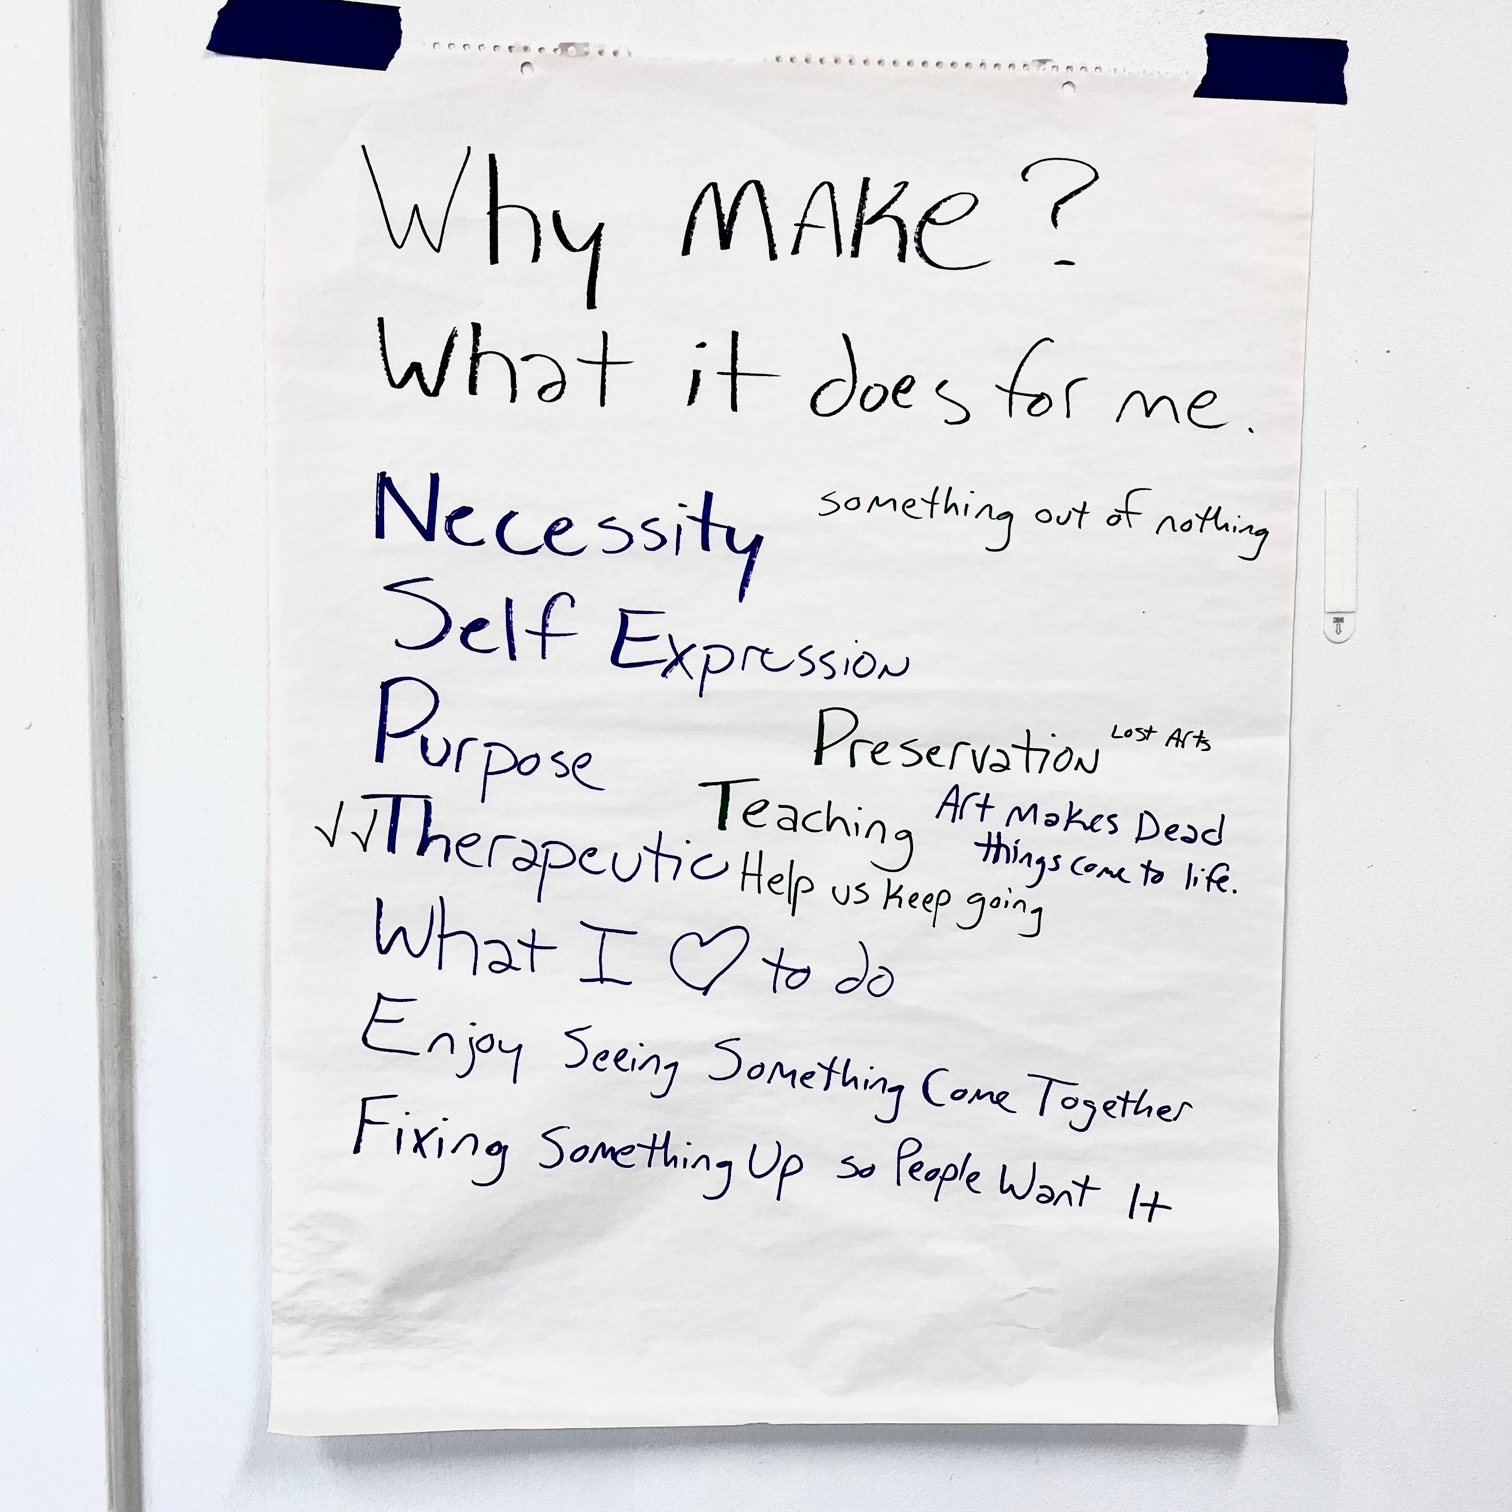 Why MAKe?
What it does for me.
Necessity
something out of nothing
Self Expression
Purpose
Preservation Lost Arts
Teaching
Art Makes Dead
things come to life.
√√Therapeutic
Help us keep going
What I ♡ to do
Enjoy Seeing Something Come Together
Fixing Something Up so People Want It
3M